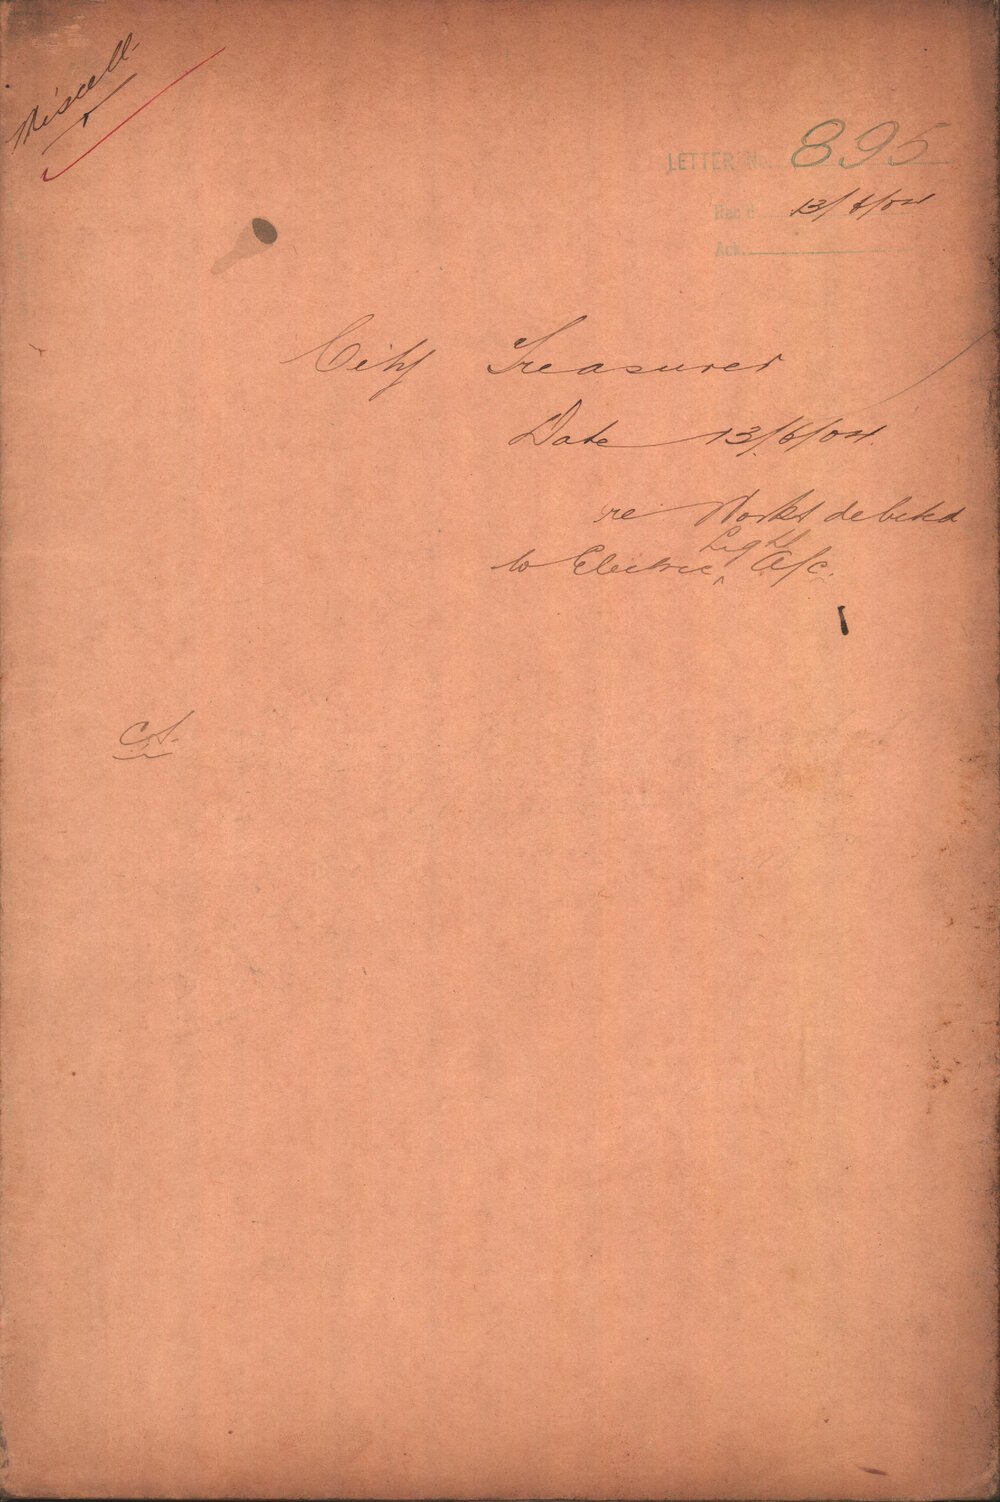 Miscell.
LETTER No. 895
Rec'd 13/6/04
Ack.
City Treasurer
Date 13/6/04.
re Works debited
Light
to Electric ^ A/c.